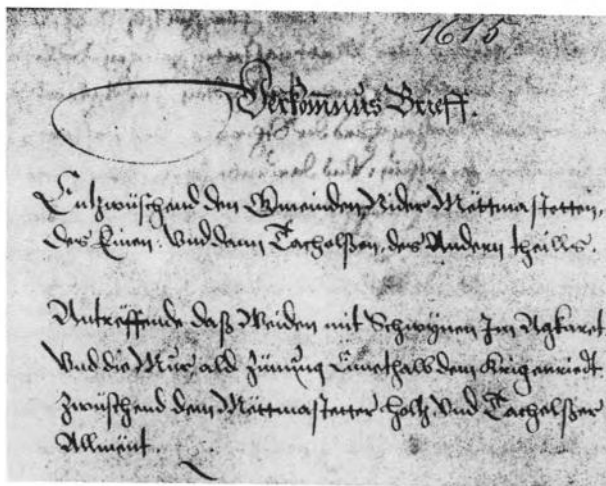 1615
Verkom̅nus Brieff.
Entzwüschend den Gmeinden, Nider Mettmastetten,
des Einen. Vnd denn Tachelßen, des Andern theills.
Antreffende daß Weiden mit Schwynen Jm Agkaret.
Vnd die Mur, ald Zünung Ennethalb dem Krigenriedt.
Zwüschend dem Mettmastetter holtz, Vnd Tachelßer
Allment.